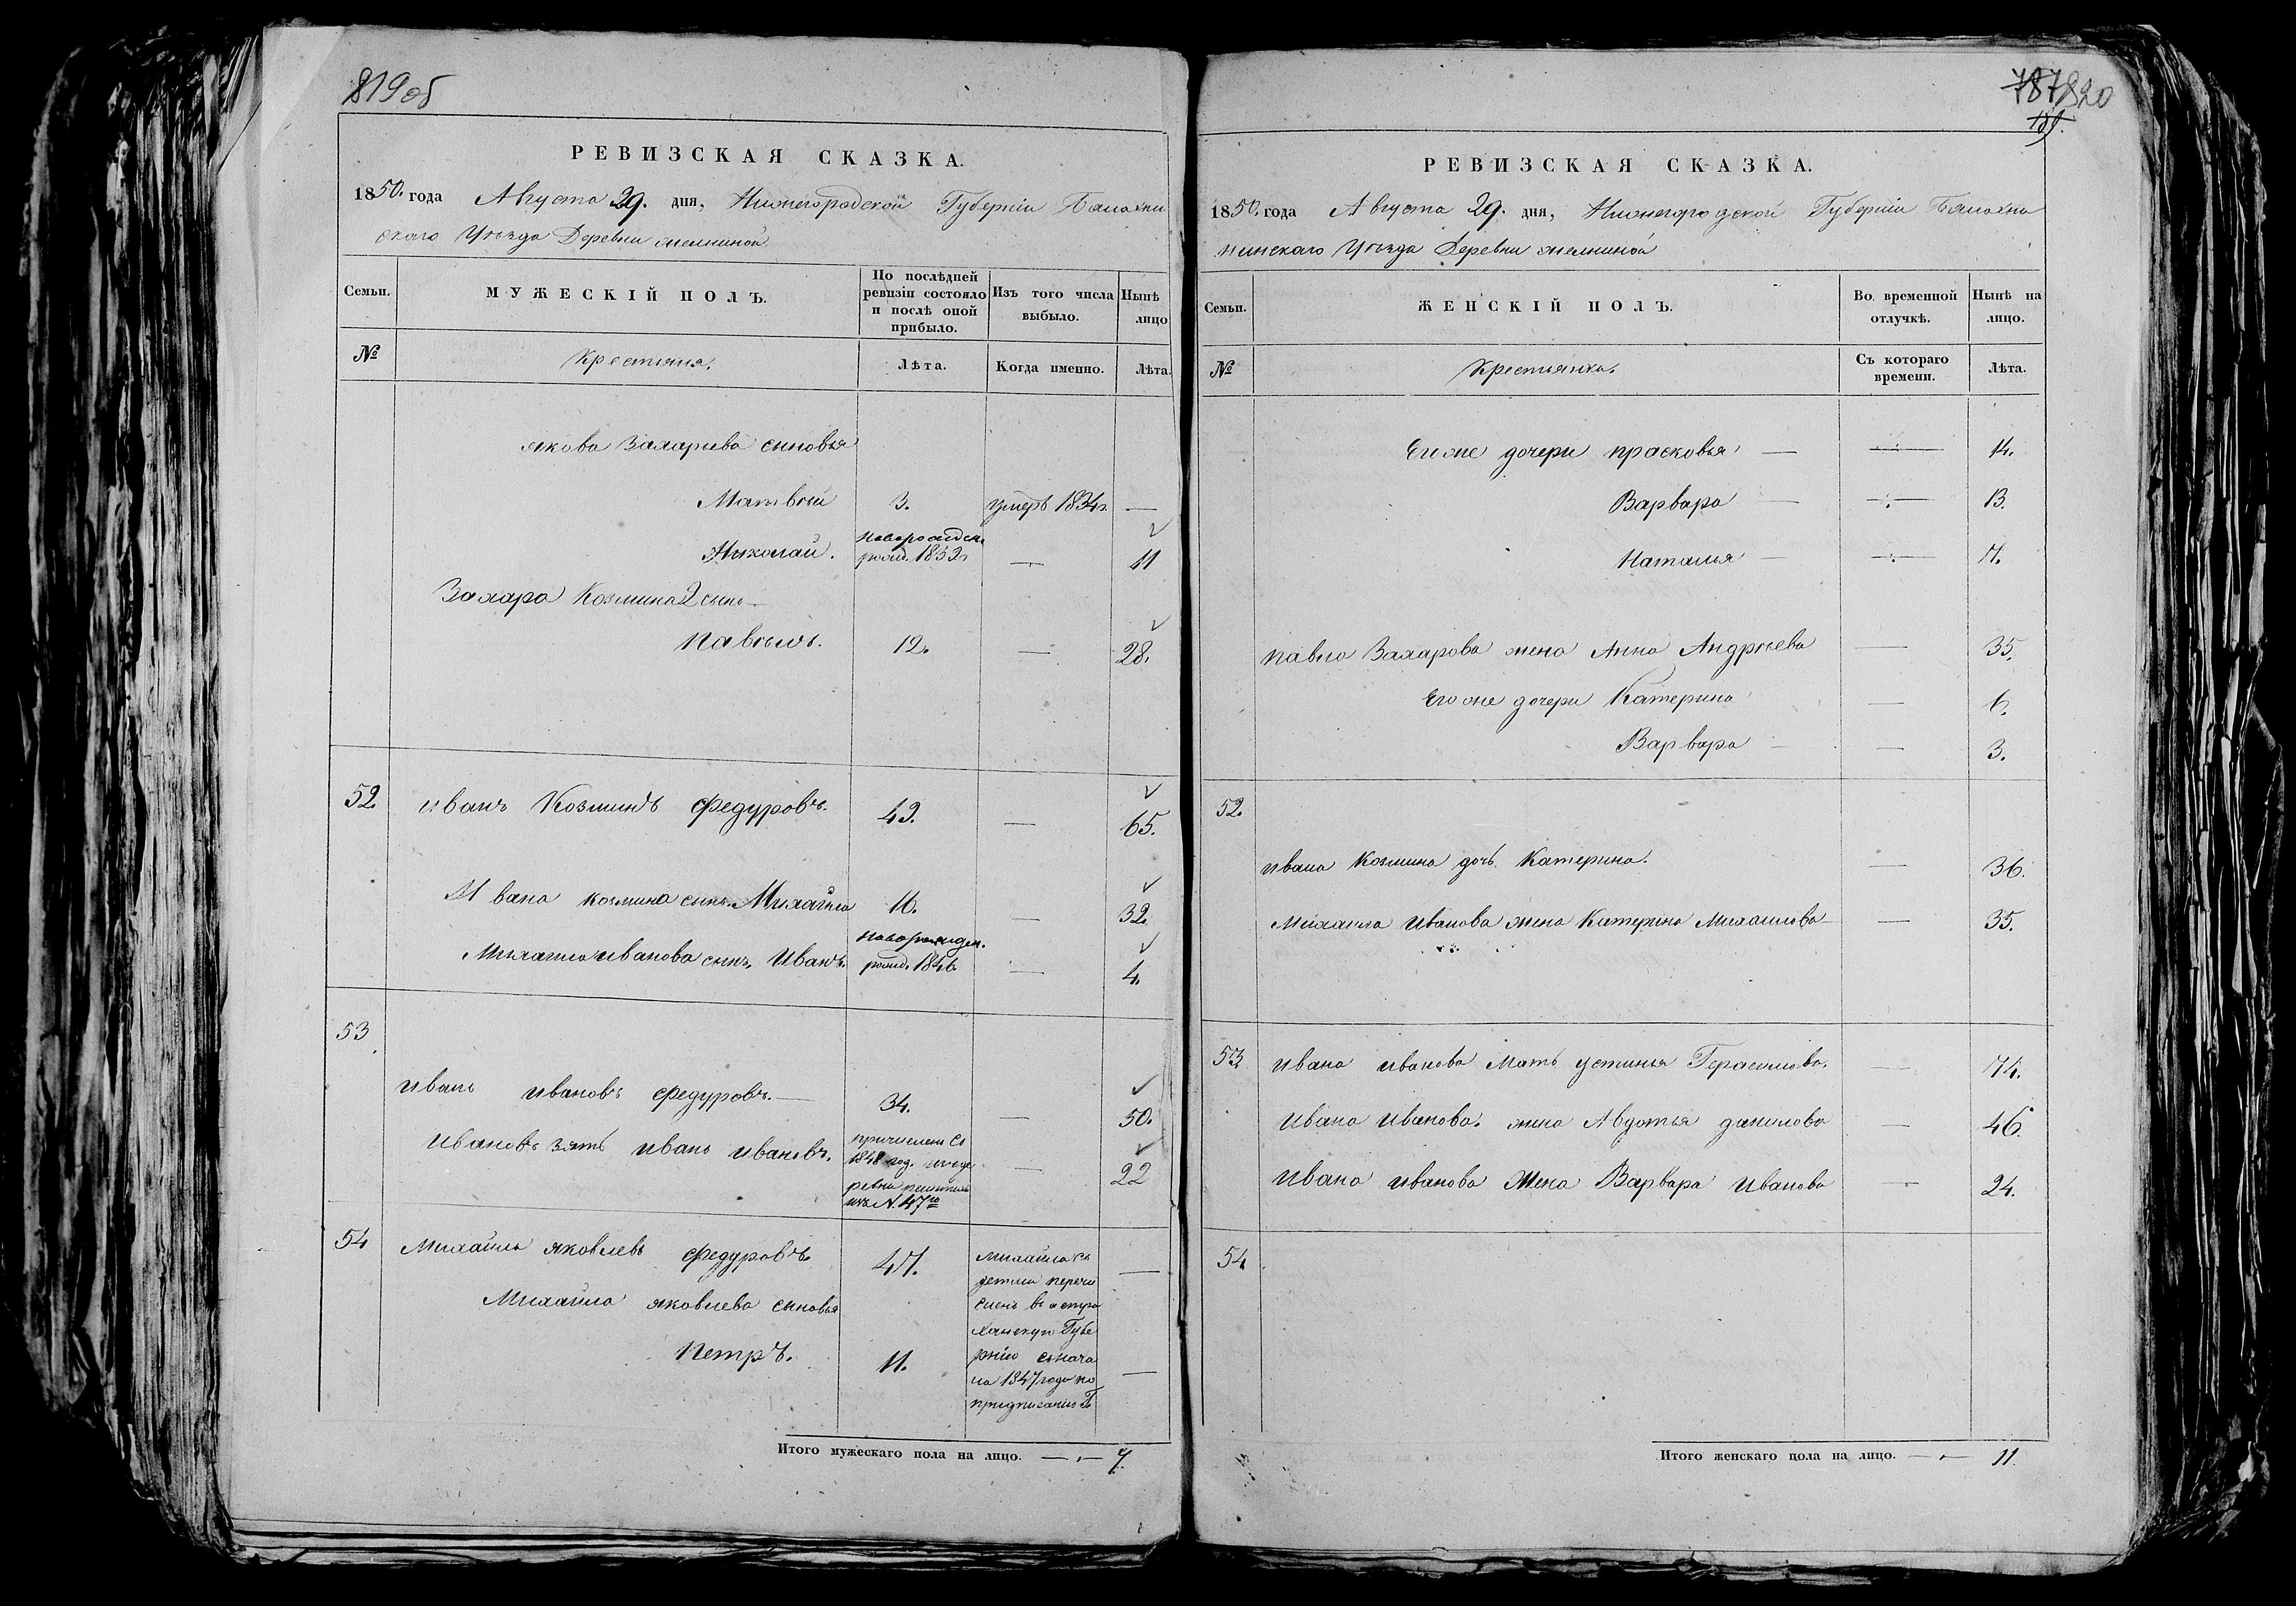 819об
РЕВИЗСКАЯ СКАЗКА.
1850. года Августа 29. дня, Нижегородской Губерніи Балахни
скаго Уѣзда Деревни
Семьи.
МУЖЕСКІЙ ПОЛЪ.
По послѣдней ревизіи состояло и послѣ оной прибыло.
Изъ того числа выбыло.
Нынѣ лицо
№
Крестьяня.
Лѣта.
Когда именно.
Лѣта.
якова Захарьева сыновья
Матвѣй 3. умеръ 1834г. —
Николай. новорожден. рожд. 1832г — 11
Захара Козмина 2 сынъ
Павѣлъ. 12. — 28.
52. иванъ Козминъ Федуровъ. 49. — 65.
Ивана козмина сынъ Михайло 16. — 32.
Михайло иванова сынъ, Иванъ. новорожден. рожд. 1846 — 4.
53
иванъ ивановъ Федуровъ. — 34. — 50.
Ивановъ зять иванъ ивановъ. причисленъ съ — 22
1848 год. изъ де
ревни
№ 47го
54 Михайло яковлевъ Федуровъ. 47. Михайло съ —
детми перечи
Михайло яковлева сыновья сленъ въ астра
ханскую Губе
Петръ. 11. рнію съ нача —
ла 1847 года по
предписанію Г
Итого мужескаго пола на лицо. — „ — 7.
787 820
РЕВИЗСКАЯ СКАЗКА.
1850. года Августа 29. дня, Нижегородской Губерніи Балахни
нинскаго Уѣзда Деревни
Семьи.
ЖЕНСКІЙ ПОЛЪ.
Во временной отлучкѣ.
Нынѣ на лицо.
№
Крестьянка.
Съ котораго времени.
Лѣта.
Егоже дочери прасковья — — 14.
Варвара — — 13.
Наталья — —
павла Захарова жена Анна Андрѣева — 35.
Егоже дочери Катерина — 6.
Варвара — — 3.
52.
ивана Козмина дочь Катерина. — 36.
Михаила Иванова жена Катерина Михаилова — 35.
53. ивана иванова Мать устинья Герасимова. — 74.
Ивана Иванова. жена Авдотья данилова — 46.
Ивана иванова Жена Варвара иванова — 24.
54
Итого женскаго пола на лицо. — „ — 11.